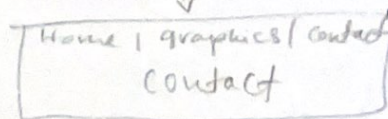 Home | graphics | contact
contact